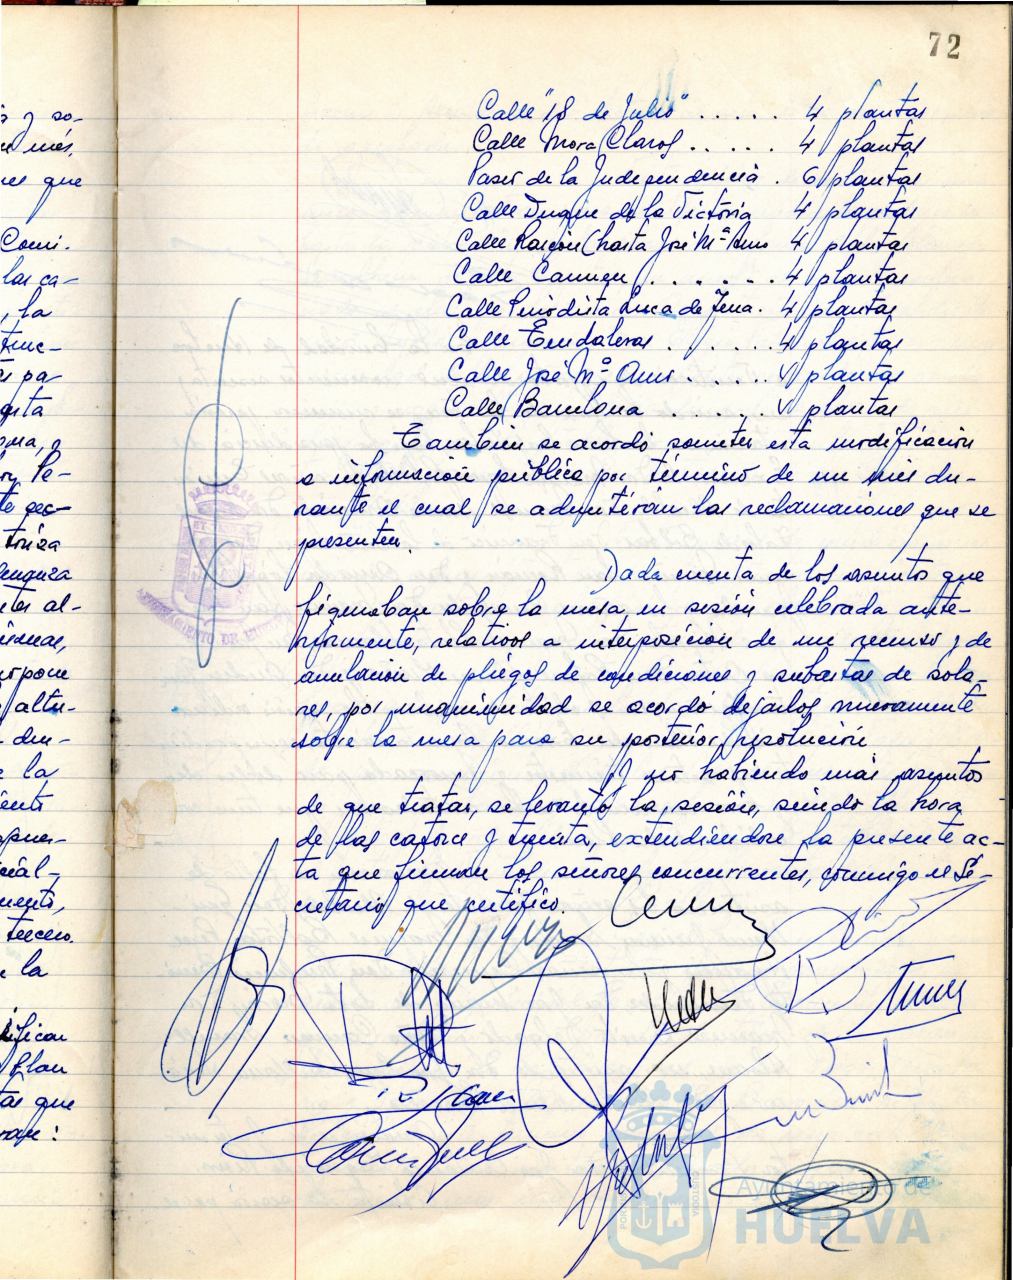 72
s y so-
e més.
nes que
Comi-
las ca-
, la
truc-
es pa-
gsta
oma, y
Pe-
te gec-
toriza
al-
irmar,
propone
altu-
- du-
e la
iente
apue-
cial-
mento,
tercero.
a la
ifican
Plan
tas que
Calle "18 de Julio" ..... 4 plantas
Calle Mora Claros ..... 4 plantas
Paseo de la Independencia . 6 plantas
Calle Duque de la Victoria 4 plantas
Calle Rascón (hasta José Mª Amo 4 plantas
Calle Carmen ...... 4 plantas
Calle Periodista Luca de Tena. 4 plantas
Calle Tendaleras . .... 4 plantas
Calle José Mª Amo ..... V plantas
Calle Barcelona ..... V plantas
También se acordó someter esta modificación
a información pública por término de un mes du-
rante el cual se admitirán las reclamaciones que se
presenten.
Dada cuenta de los asuntos que
figuraban sobre la mesa en sesión celebrada ante-
riormente, relativos a interposición de un recurso y de
anulación de pliegos de condiciones y subastas de sola-
res, por unanimidad se acordó dejarlos nuevamente
sobre la mesa para su posterior resolución.
Y no habiendo más asuntos
de que tratar, se levantó la sesión, siendo la hora
de las catorce y treinta, extendiéndose la presente ac-
ta que firman los señores concurrentes, conmigo el Se-
cretario que certifico.
AYUNTAMIENTO DE HUELVA
Ayuntamiento de
HUELVA